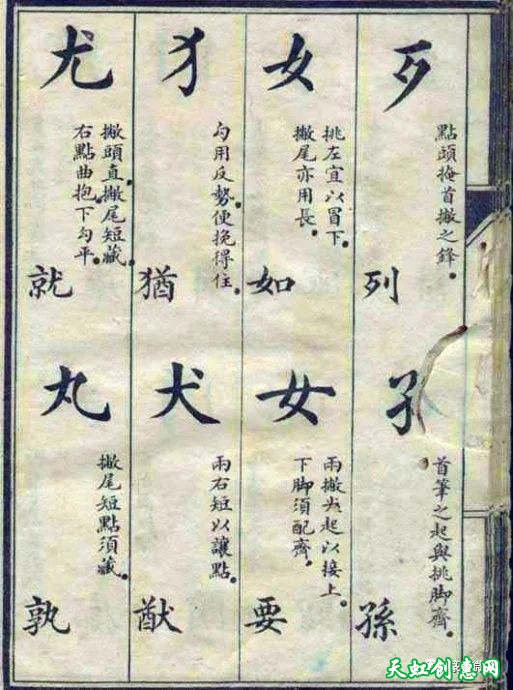 歹
點頭掩首撇之鋒。
列
孑
首筆之起與挑脚齊。
孫
女
挑左宜以冒下。
撇尾亦用長。
如
女
兩撇尖起以接上。
下脚須配齊。
要
犭
勾用反勢便挽得住。
猶
犬
兩右短以讓點。
猷
尤
撇頭直。撇尾短藏。
右點曲抱。下勾平。
就
丸
撇尾短點須藏。
孰
天虹创意网